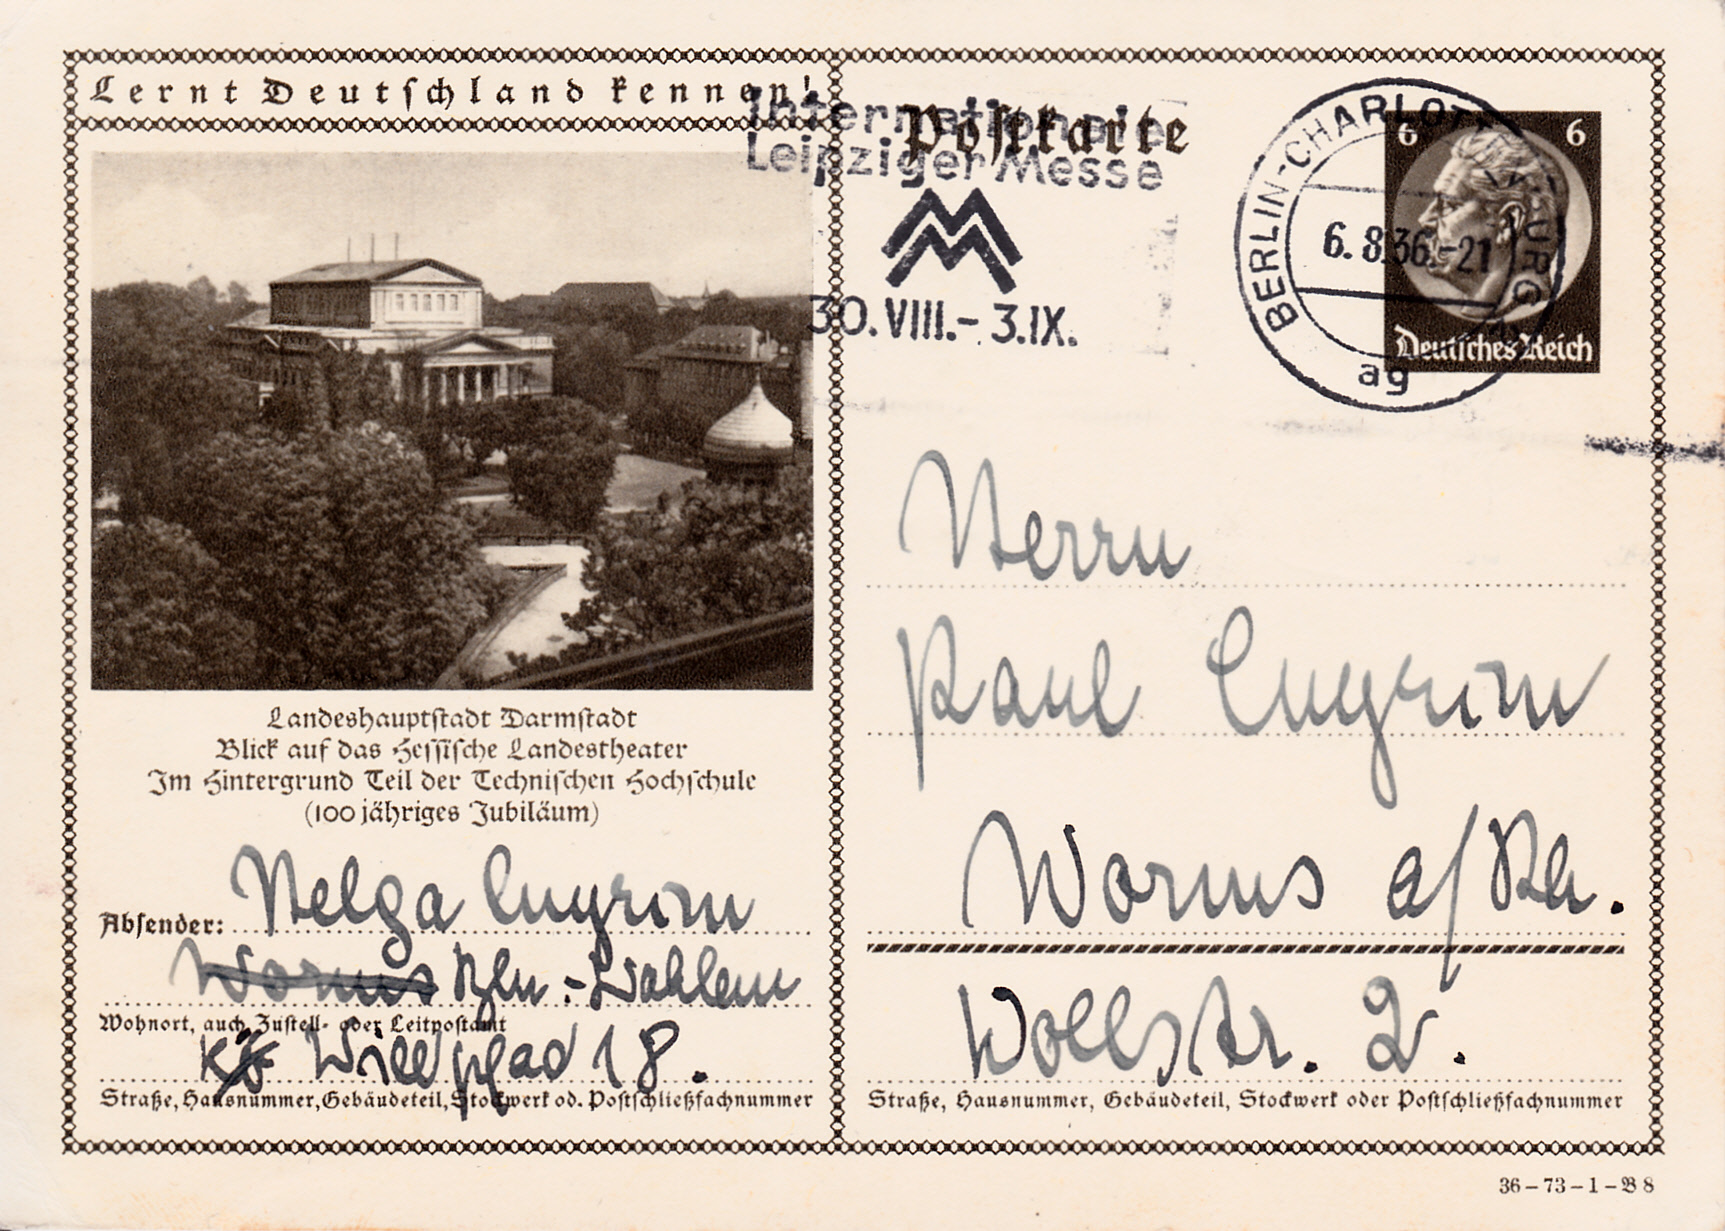 Lernt Deutschland kennen!
Landeshauptstadt Darmstadt
Blick auf das Hessische Landestheater
Im Hintergrund Teil der Technischen Hochschule
(100 jähriges Jubiläum)
Absender: Helga
Worms Bln.-Dahlem
Wohnort, auch Zustell- oder Leitpostamt
Wildpfad 18.
Straße, Hausnummer, Gebäudeteil, Stockwerk od. Postschließfachnummer
Postkarte
Internationale
Leipziger Messe
30.VIII.-3.IX.
BERLIN-CHARLOTTENBURG
6.8.36.-21
ag
6 6
Deutsches Reich
Herrn
Paul
Worms a/Rh.
Wollstr. 2.
Straße, Hausnummer, Gebäudeteil, Stockwerk oder Postschließfachnummer
36-73-1-B 8